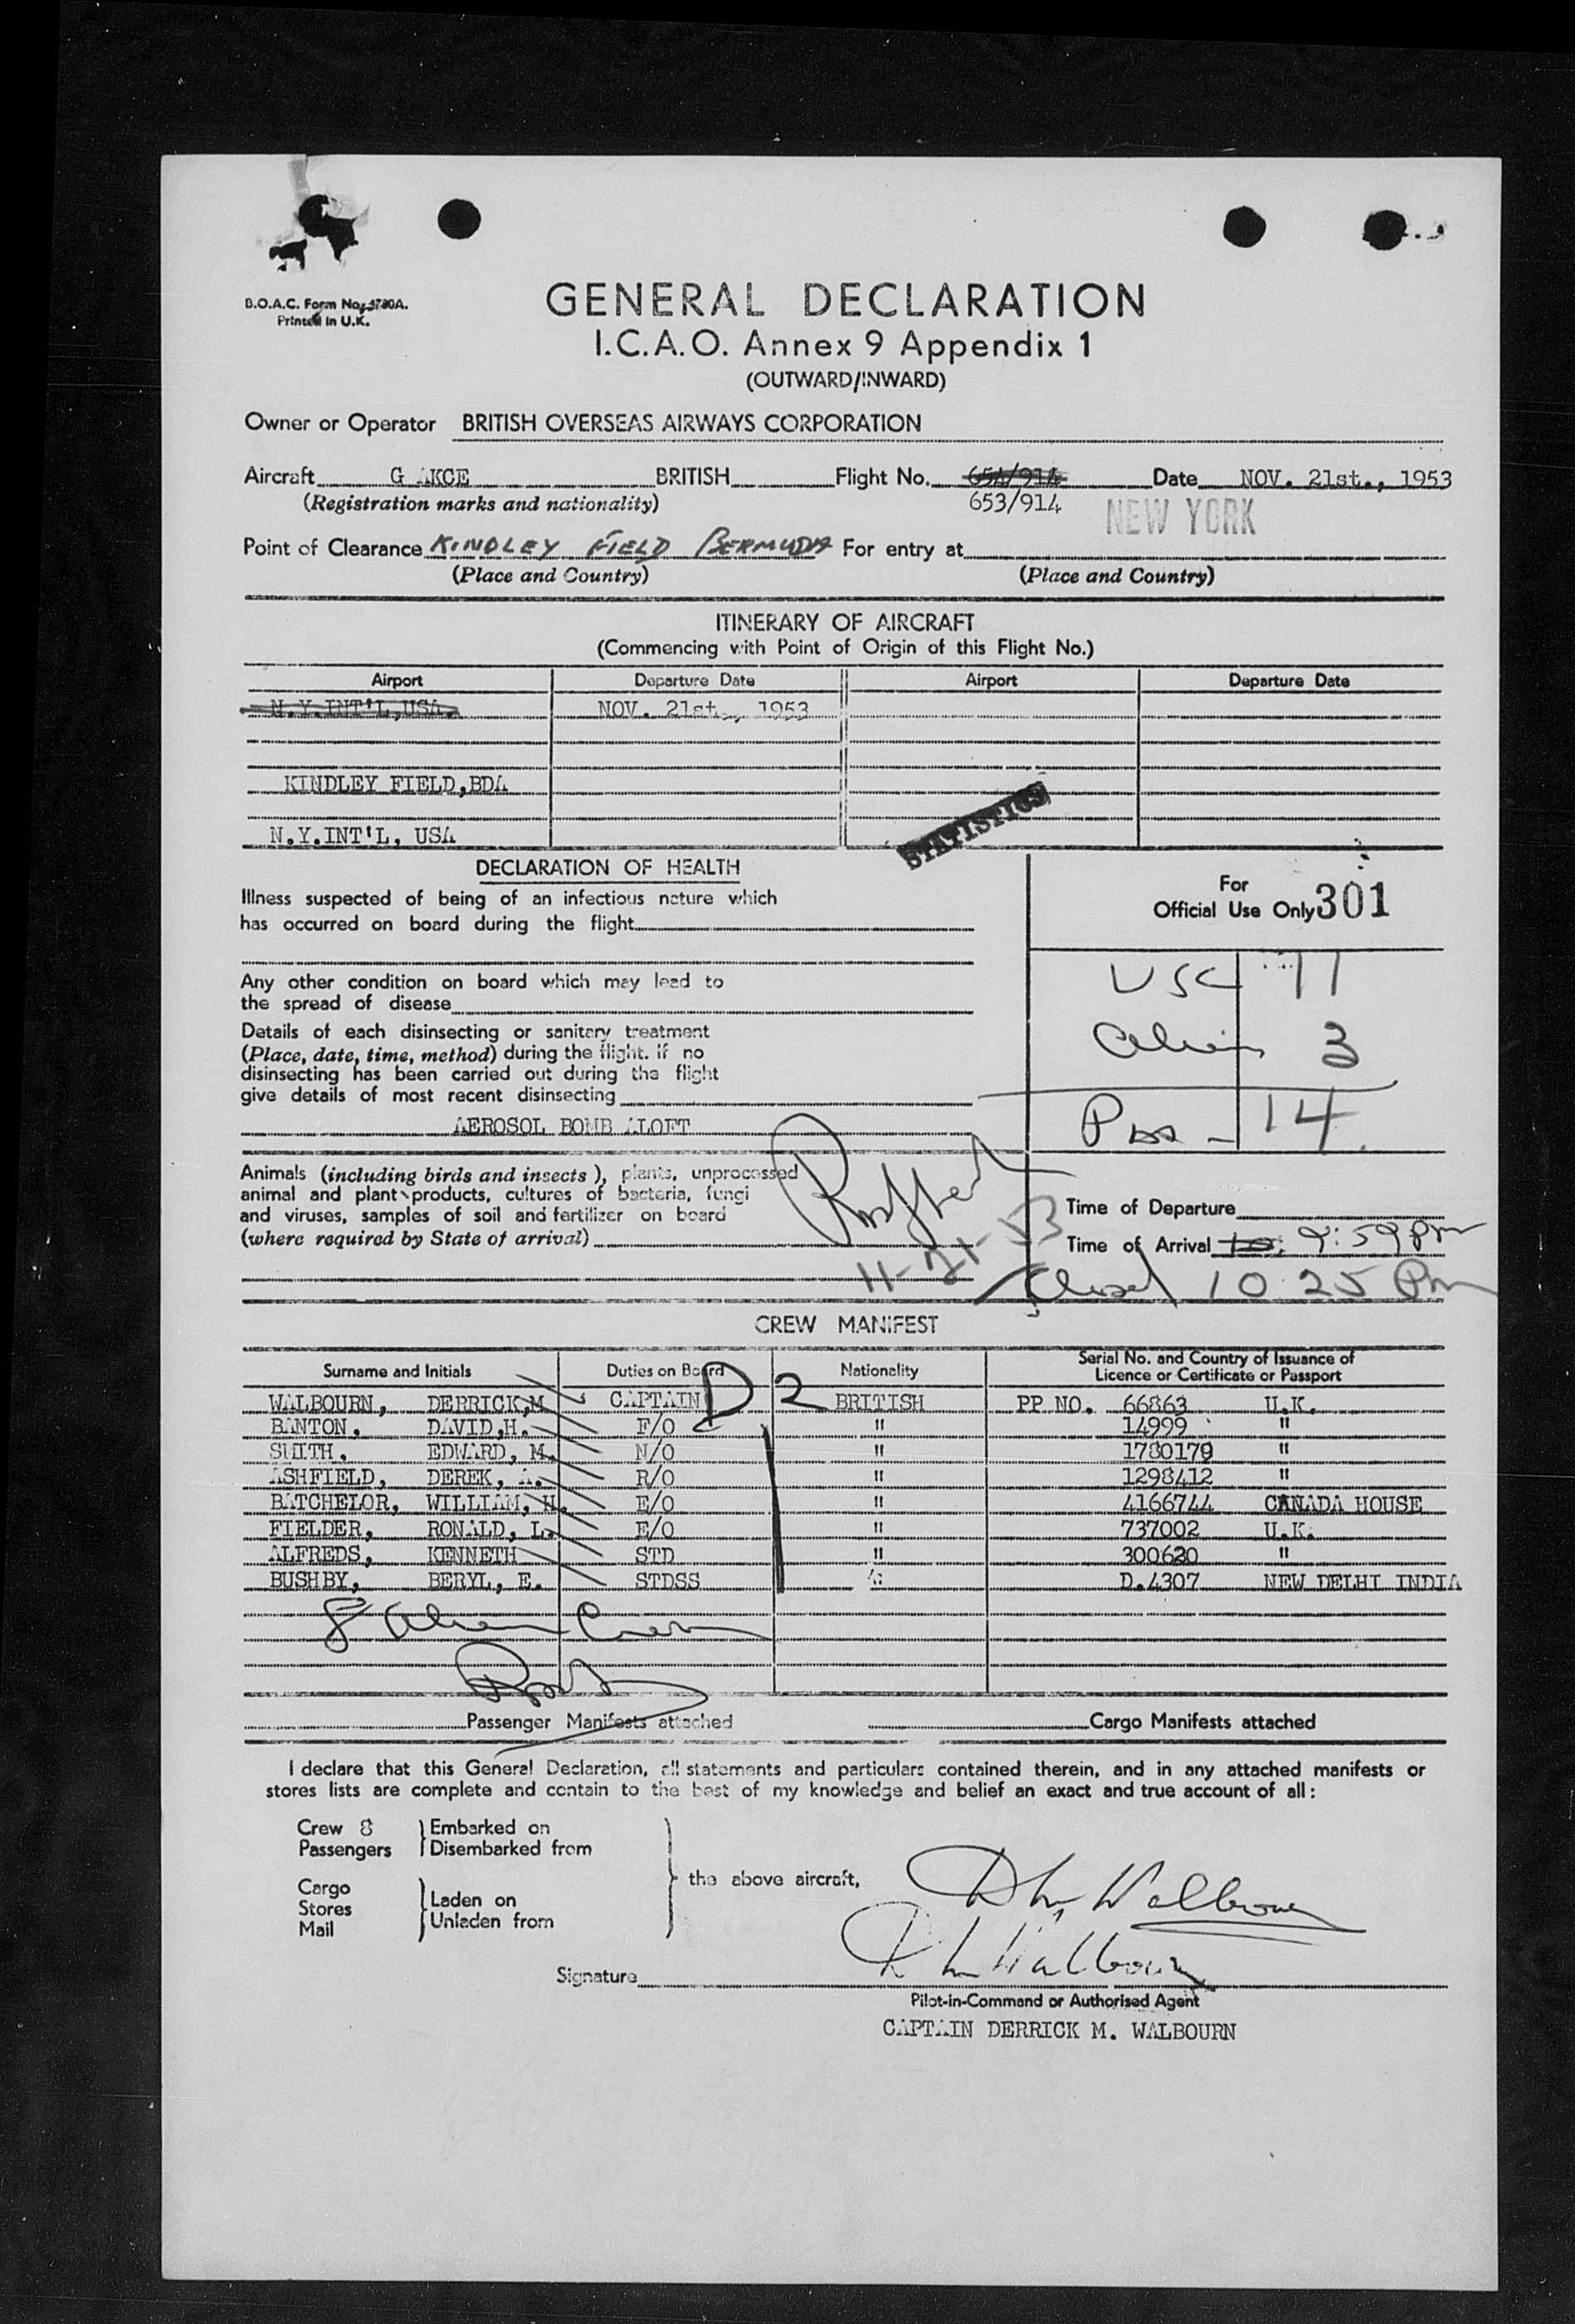 B.O.A.C. Form No. 1780A.
Printed in U.K.
GENERAL DECLARATION
I.C.A.O. Annex 9 Appendix 1
(OUTWARD/INWARD)
Owner or Operator BRITISH OVERSEAS AIRWAYS CORPORATION
Aircraft G AKCE BRITISH Flight No. 654/914 Date NOV. 21st., 1953
(Registration marks and nationality) 653/914 NEW YORK
Point of Clearance KINDLEY FIELD BERMUDA For entry at
(Place and Country) (Place and Country)
ITINERARY OF AIRCRAFT
(Commencing with Point of Origin of this Flight No.)
Airport Departure Date Airport Departure Date
N.Y.INT'L,USA. NOV. 21st., 1953
KINDLEY FIELD,BDA
STATISTICS
N.Y.INT'L, USA
DECLARATION OF HEALTH
Illness suspected of being of an infectious nature which
has occurred on board during the flight
For
Official Use Only 301
Any other condition on board which may lead to
the spread of disease
USC 11
Details of each disinsecting or sanitary treatment
(Place, date, time, method) during the flight. If no
disinsecting has been carried out during the flight
give details of most recent disinsecting
Alien 3
AEROSOL BOMB ALOFT
Pass - 14
Animals (including birds and insects), plants, unprocessed
animal and plant products, cultures of bacteria, fungi
and viruses, samples of soil and fertilizer on board
(where required by State of arrival)
11-21-53
Time of Departure
Time of Arrival 10: 9:59 Pm
Closed 10 25 Pm
CREW MANIFEST
Surname and Initials Duties on Board Nationality Serial No. and Country of Issuance of
Licence or Certificate or Passport
D 2
WALBOURN, DERRICK,M CAPTAIN BRITISH PP NO. 66863 U.K.
BANTON, DAVID,H. F/O " 14999 "
SMITH, EDWARD, M. N/O " 1780179 "
ASHFIELD, DEREK, A. R/O " 1298412 "
BATCHELOR, WILLIAM, H. E/O " 4166744 CANADA HOUSE
FIELDER, RONALD, L. E/O " 737002 U.K.
ALFREDS, KENNETH STD " 300620 "
BUSHBY, BERYL, E. STDSS " D.4307 NEW DELHI INDIA
8 Alien Crew
Passenger Manifests attached Cargo Manifests attached
I declare that this General Declaration, all statements and particulars contained therein, and in any attached manifests or
stores lists are complete and contain to the best of my knowledge and belief an exact and true account of all :
Crew 8 Embarked on
Passengers Disembarked from
the above aircraft,
Cargo
Stores Laden on
Mail Unladen from
D M Walbourn
D M Walbourn
Signature
Pilot-in-Command or Authorised Agent
CAPTAIN DERRICK M. WALBOURN